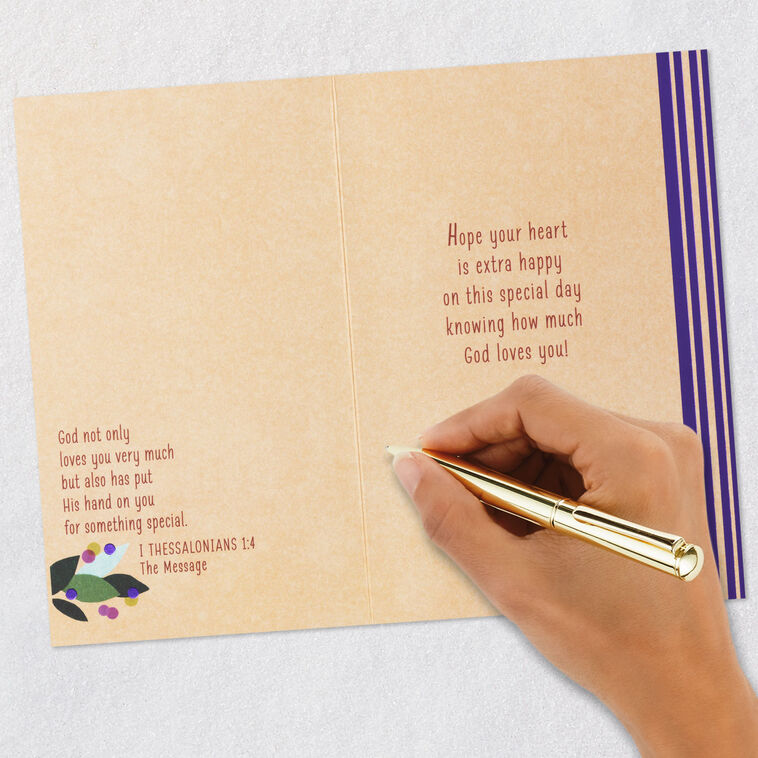 God not only
loves you very much
but also has put
His hand on you
for something special.
I THESSALONIANS 1:4
The Message
Hope your heart
is extra happy
on this special day
knowing how much
God loves you!